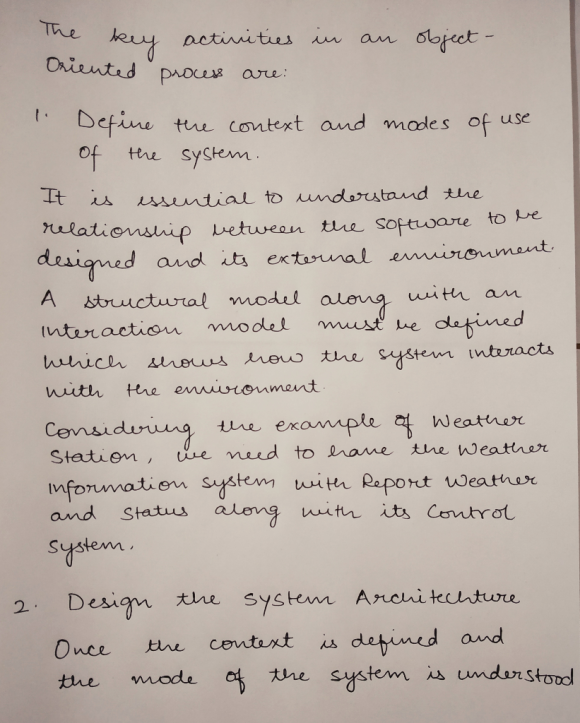 The key activities in an object-
Oriented process are:
1. Define the context and modes of use
of the system.
It is essential to understand the
relationship between the software to be
designed and its external environment.
A structural model along with an
interaction model must be defined
which shows how the system interacts
with the environment.
Considering the example of Weather
Station, we need to have the Weather
information system with Report Weather
and Status along with its Control
System.
2. Design the System Architechture
Once the context is defined and
the mode of the system is understood